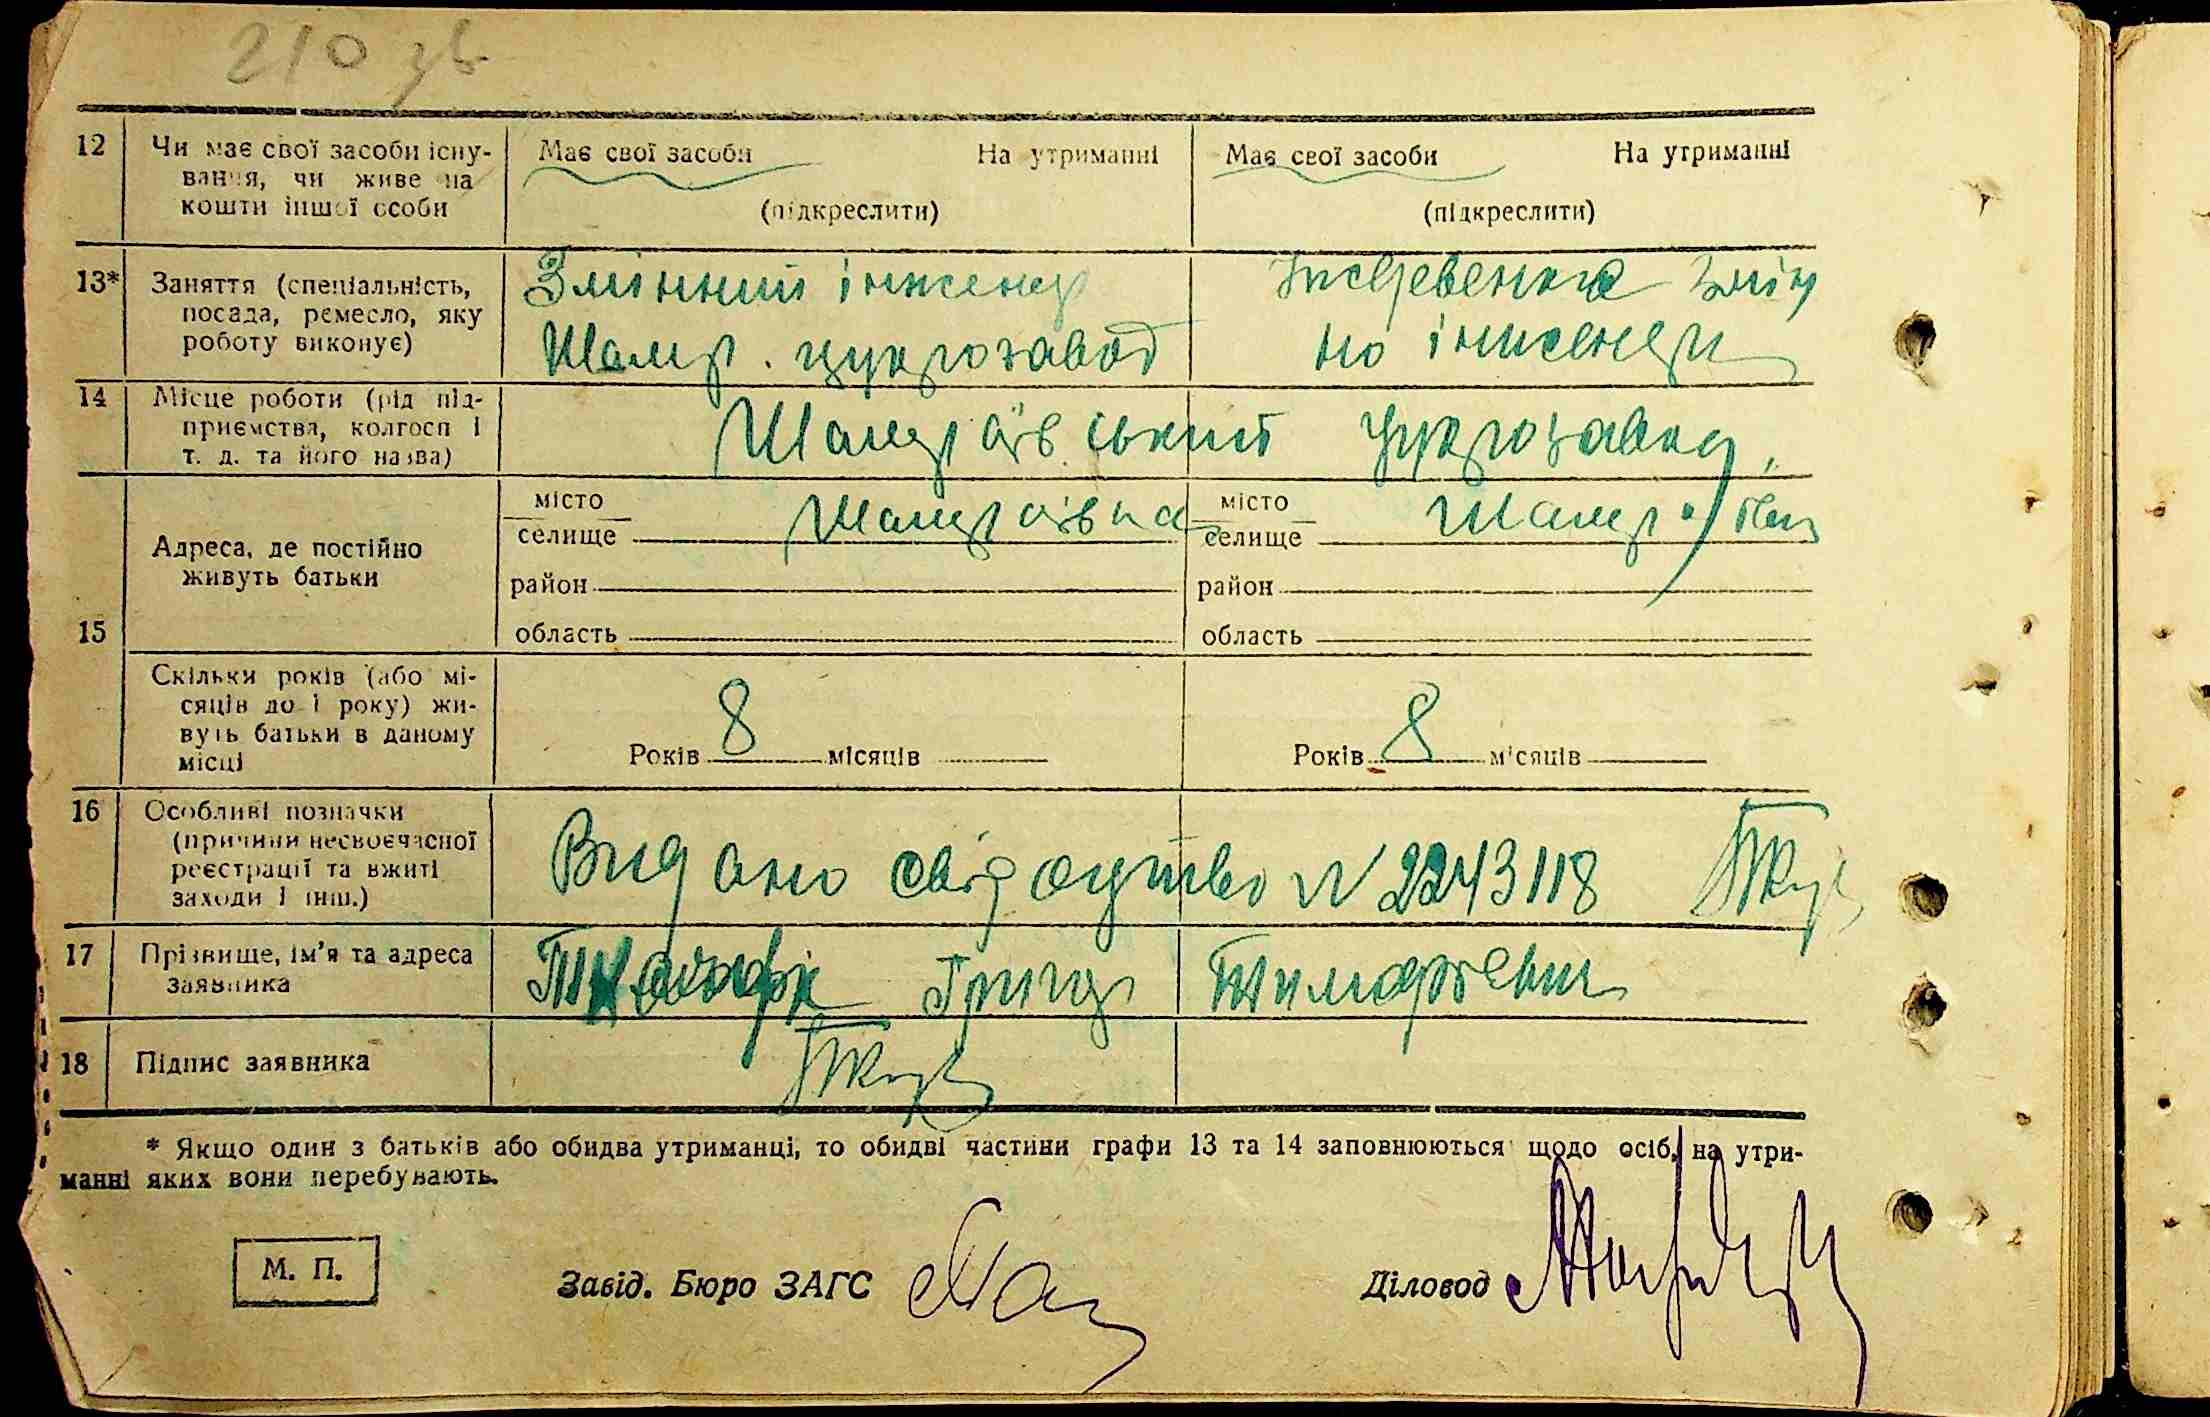 210 зв
12 Чи має свої засоби існу- Має свої засоби На утриманні Має свої засоби На утриманні
вання, чи живе на
кошти іншої особи (підкреслити) (підкреслити)
13* Заняття (спеціальність, Змінний інженер
посада, ремесло, яку Шамр. цукрозавод но інженери
роботу виконує)
14 Місце роботи (рід під- Шамраївський цукрозавод
приємства, колгосп і
т. д. та його назва)
місто Шамраївка місто
Адреса, де постійно селище селище
живуть батьки район район
15 область область
Скільки років (або мі-
сяців до 1 року) жи-
вуть батьки в даному Років 8 місяців Років 8 місяців
місці
16 Особливі позначки
(причини несвоєчасної Видано свідоцтво N 2243118
реєстрації та вжиті
заходи і інш.)
17 Прізвище, ім'я та адреса Гриць
заявника
18 Підпис заявника
* Якщо один з батьків або обидва утриманці, то обидві частини графи 13 та 14 заповнюються щодо осіб, на утри-
манні яких вони перебувають.
М. П. Завід. Бюро ЗАГС Діловод